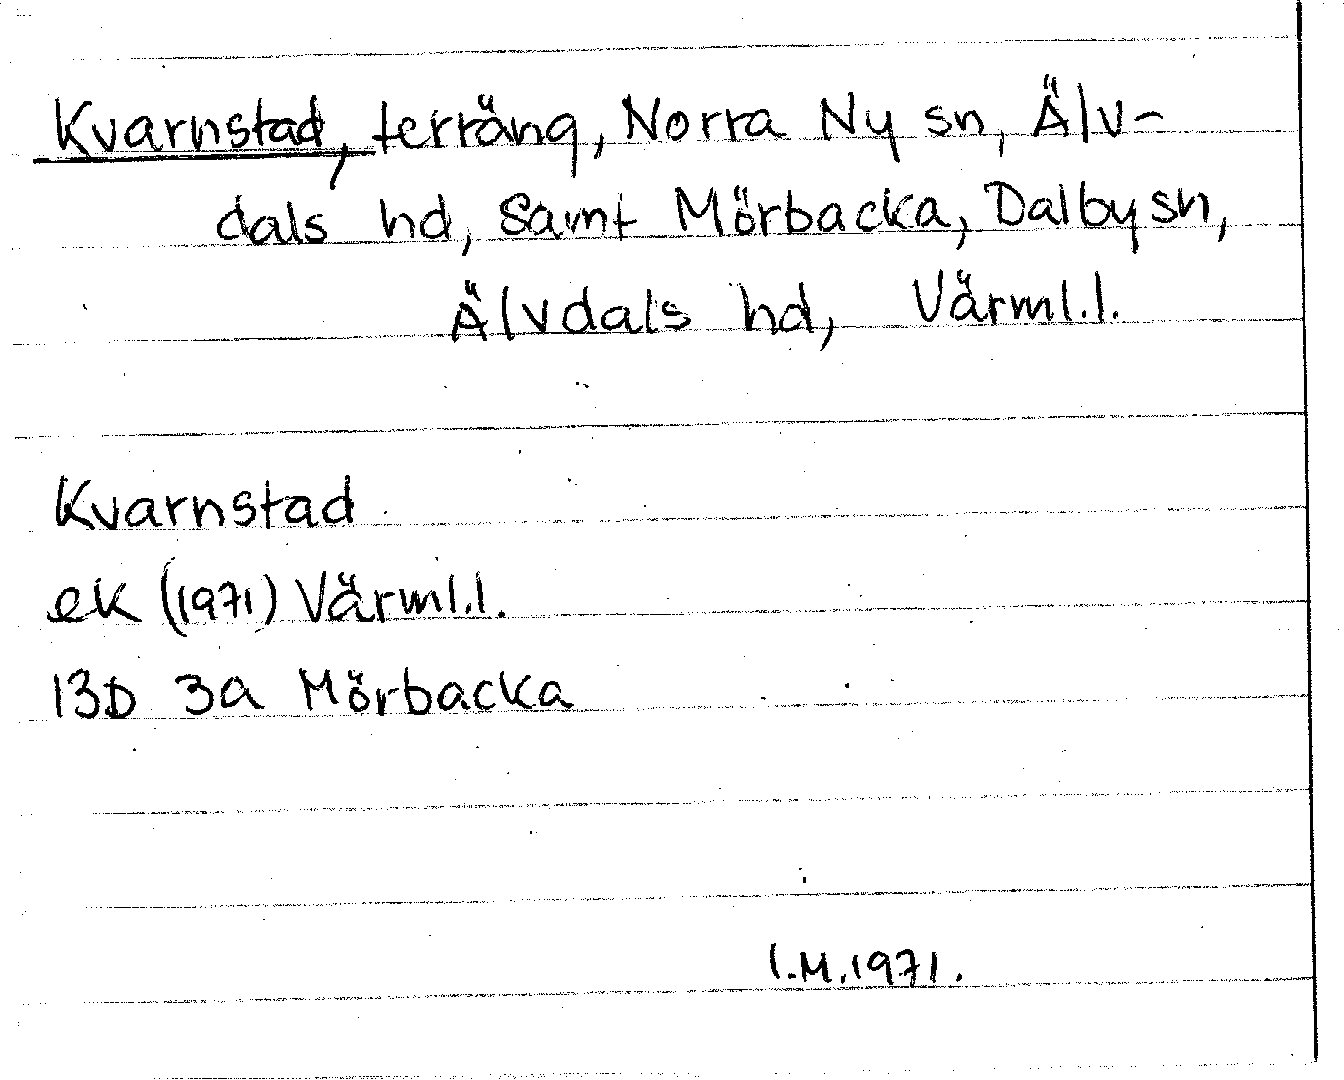 Kvarnstad, terräng, Norra Ny sn, Älv-
dals hd, samt Mörbacka, Dalby sn,
Älvdals hd, Värml.l.
Kvarnstad
ek (1971) Värml.l.
13D 3a Mörbacka
I.M.1971.